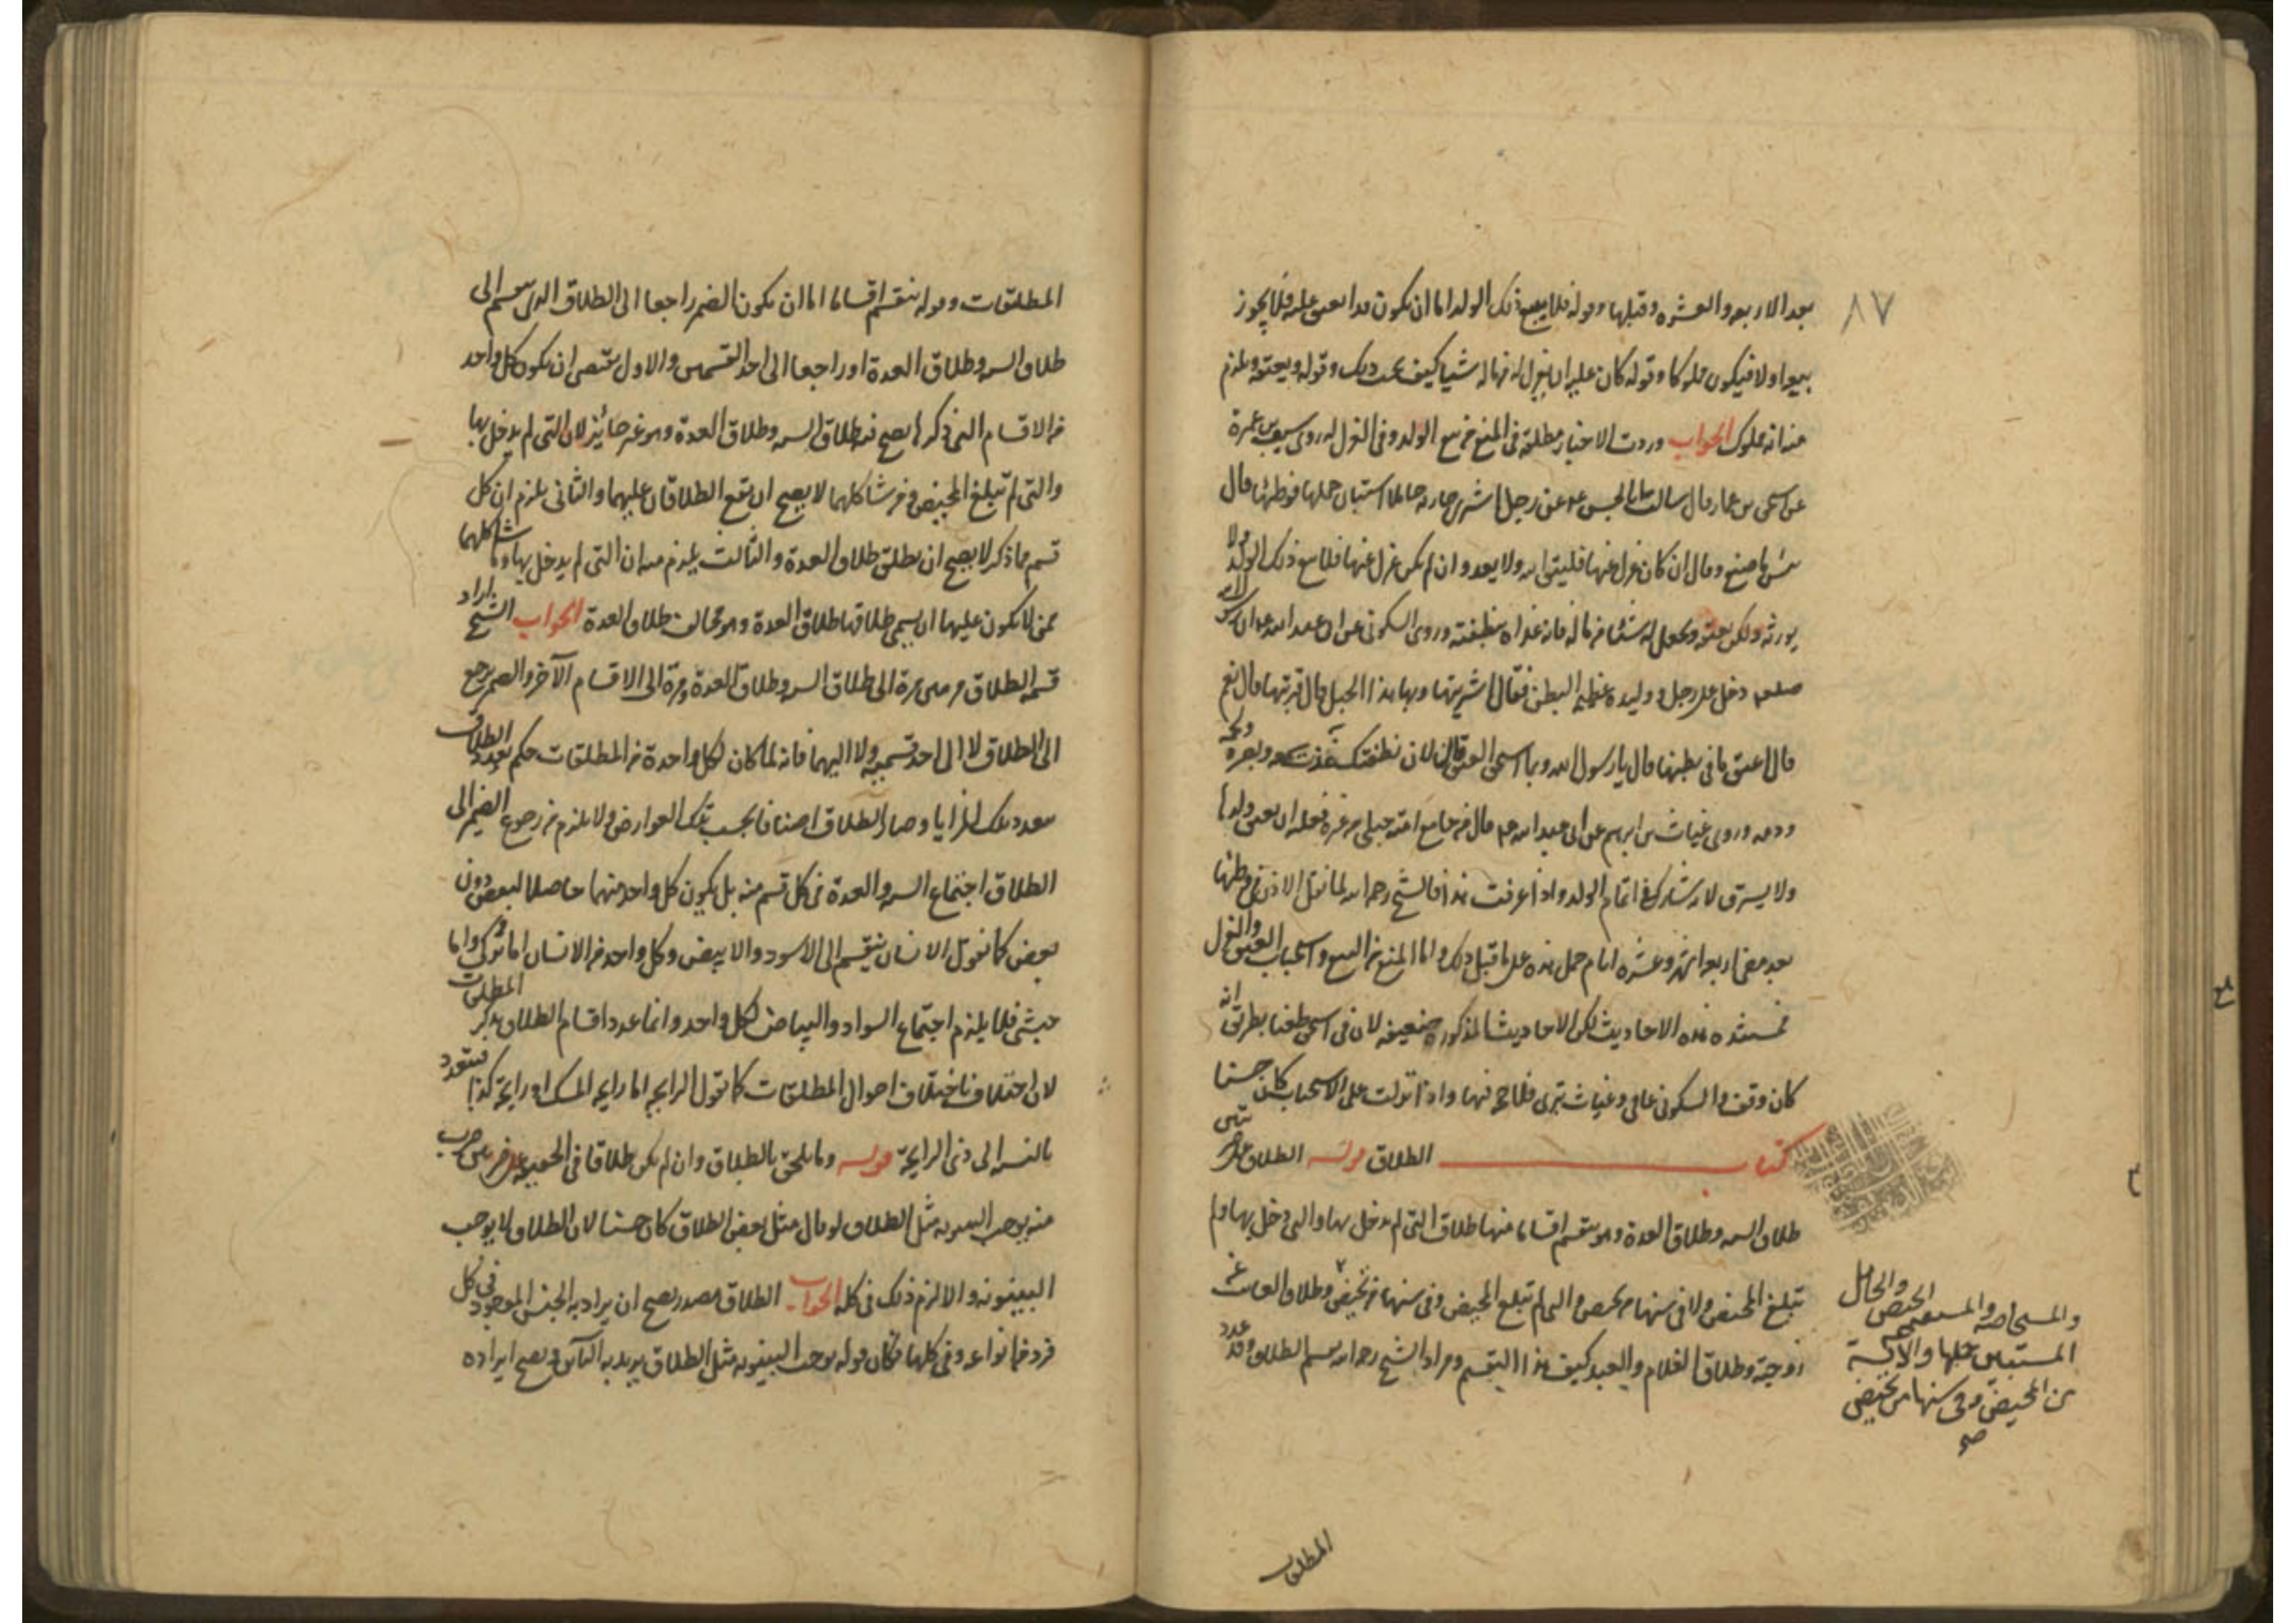 ٨٧
بعد الاربعه والعشره وقبلها وقوله فلا يبيع ذلك الولد اما ان يكون قد انعتق عليه فلا يجوز
بيعه اولا فيكون مملوكا وقوله كان عليه ان يعزل له من ماله شيا كيف يجب ذلك وقوله ويعتقه ويلزم
منه انه مملوك الجواب وردت الاخبار مطلقة في المنع من بيع الولد وفي العزل له روى
عن اسحق بن عمار قال سالت ابا الحسن عن رجل اشترى جاريه حاملا استبان حملها فوطئها قال
بئس ما صنع وقال ان كان عزل عنها فليتق الله ولا يعود وان لم يكن عزل عنها فلا يبيع ذلك الولد ولا
يورثه ولكن يعتقه ويجعل له شيئا من ماله فانه غذاه بنطفته وروى السكوني عن ابي عبد الله ان رسول الله
صلعم دخل على رجل ووليده عظيمه البطن فقال اشتريتها وبها هذا الحبل قال قربتها قال نعم
قال اعتق ما في بطنها قال يا رسول الله وبما استحق العتق قال لان نطفتك غذت سمعه وبصره ولحمه
ودمه وروى غياث بن ابرهيم عن ابي عبد الله قال من جامع امة حبلى من غيره فعليه ان يعتق ولدها
ولا يسترق لانه شارك في اتمام الولد واذا عرفت هذا فالشيخ رحمه الله لما نقل الاذن في وطئها
بعد مضى اربعه اشهر وعشره ايام حمل هذه على ما قبل ذلك واما المنع من البيع واستحباب العتق والعزل
فمستنده هذه الاحاديث لكن الاحاديث المذكورة ضعيفه لان في اسحق طعنا بطريق انه
كان وقف والسكوني عامي وغياث بتري فلا حجة فيها واذا نزلت على الاستحباب كان حسنا
كتاب الطلاق قوله الطلاق على ضربين
طلاق السنه وطلاق العدة وهو ينقسم اقساما منها طلاق التي لم يدخل بها والتي دخل بها ولم
تبلغ المحيض ولا في سنها من تحيض والتي لم تبلغ المحيض وفي سنها من تحيض وطلاق الغايب عن
زوجته وطلاق الغلام والعبد كيف هذا التقسيم ومراد الشيخ رحمه الله تقسيم الطلاق وقد عدد
والمستحاضه والمستقيمة الحيض والحامل
المستبين حملها والآيسة
من المحيض وفي سنها من تحيض
صح
المطلقات
المطلقات وقوله ينقسم اقساما اما ان يكون الضمير راجعا الى الطلاق الذي ينقسم الى
طلاق السنه وطلاق العدة او راجعا الى احد القسمين والاول يقتضي ان يكون كل واحد
من الاقسام التي ذكرها يصح فيه طلاق السنه وطلاق العدة وهو غير جائز لان التي لم يدخل بها
والتي لم تبلغ المحيض ومن شاكلهما لا يصح ان يقع الطلاقان عليهما والثاني يلزم ان كل
قسم مما ذكر لا يصح ان يطلق طلاق العدة والثالث يلزم منه ان التي لم يدخل بها وما شاكلهما
ممن لا يكون عليها ان يسمى طلاقها طلاق العدة وهو مخالف طلاق العدة الجواب الشيخ اراد
قسمة الطلاق مرتين مرة الى طلاق السنه وطلاق العدة ومرة الى الاقسام الآخر والضمير يرجع
الى الطلاق لا الى احد قسميه ولا اليهما فانه لما كان لكل واحدة من المطلقات حكم تعدد الطلاق
بتعدد تلك المزايا وصار الطلاق اصنافا بحسب تلك العوارض ولا يلزم من رجوع الضمير الى
الطلاق اجتماع السنه والعدة في كل قسم منه بل يكون كل واحد منهما حاصلا لبعض دون
بعض كما نقول الانسان ينقسم الى الاسود والابيض وكل واحد من الانسان اما تركي واما
حبشي فلا يلزم اجتماع السواد والبياض لكل واحد وانما عدد اقسام الطلاق بذكر المطلقات
لان اختلافه باختلاف احوال المطلقات كما تقول الرايحه اما رايحه المسك او رايحة كذا فتتعدد
بالنسبه الى ذي الرايحة قوله وما يلحق بالطلاق وان لم يكن طلاقا في الحقيقه على ضربين ضرب
منه يوجب البينونه مثل الطلاق لو قال مثل بعض الطلاق كان حسنا لان الطلاق لا يوجب
البينونه والا لزم ذلك في كله الجواب الطلاق مصدر يصح ان يراد به الجنس الموجود في كل
فرد من انواعه وفي كلها فكان قوله يوجب البينونه مثل الطلاق يريد به البائن ويصح ايراده